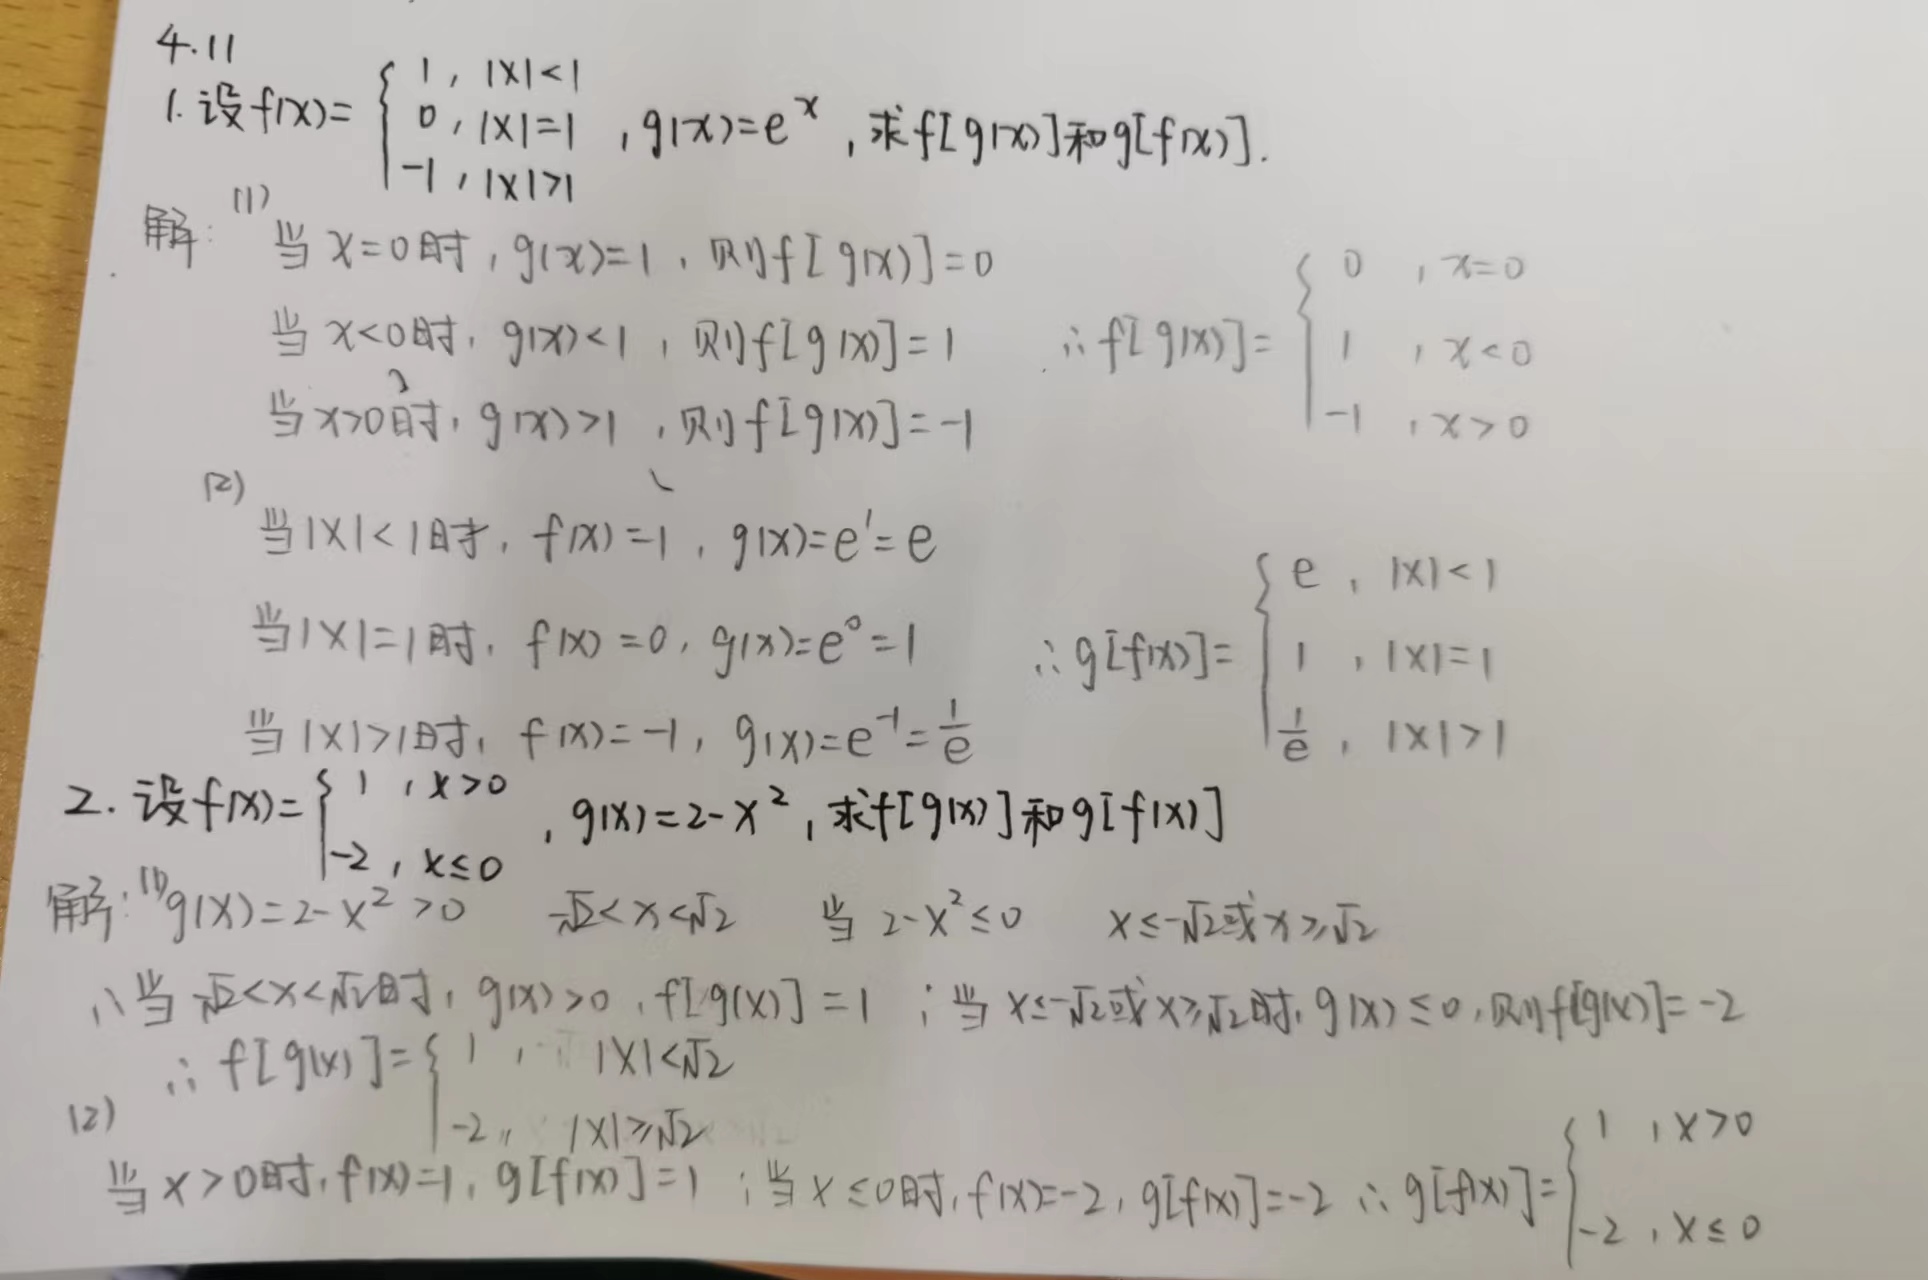 4.11
1. 设f(x)= { 1, |x|<1
0, |x|=1 , g(x)=e^x, 求f[g(x)]和g[f(x)].
-1, |x|>1
解: (1)
当x=0时, g(x)=1, 则f[g(x)]=0
当x<0时, g(x)<1, 则f[g(x)]=1
当x>0时, g(x)>1, 则f[g(x)]=-1
∴f[g(x)]= { 0, x=0
1, x<0
-1, x>0
(2)
当|x|<1时, f(x)=1, g(x)=e^1=e
当|x|=1时, f(x)=0, g(x)=e^0=1
当|x|>1时, f(x)=-1, g(x)=e^-1=1/e
∴g[f(x)]= { e, |x|<1
1, |x|=1
1/e, |x|>1
2. 设f(x)= { 1, x>0
-2, x≤0 , g(x)=2-x², 求f[g(x)]和g[f(x)]
解: (1) g(x)=2-x²>0 -√2<x<√2 当2-x²≤0 x≤-√2或x≥√2
∴当-√2<x<√2时, g(x)>0, f[g(x)]=1 ; 当x≤-√2或x≥√2时, g(x)≤0, 则f[g(x)]=-2
∴f[g(x)]= { 1, |x|<√2
-2, |x|≥√2
(2)
当x>0时, f(x)=1, g[f(x)]=1 ; 当x≤0时, f(x)=-2, g[f(x)]=-2 ∴g[f(x)]= { 1, x>0
-2, x≤0